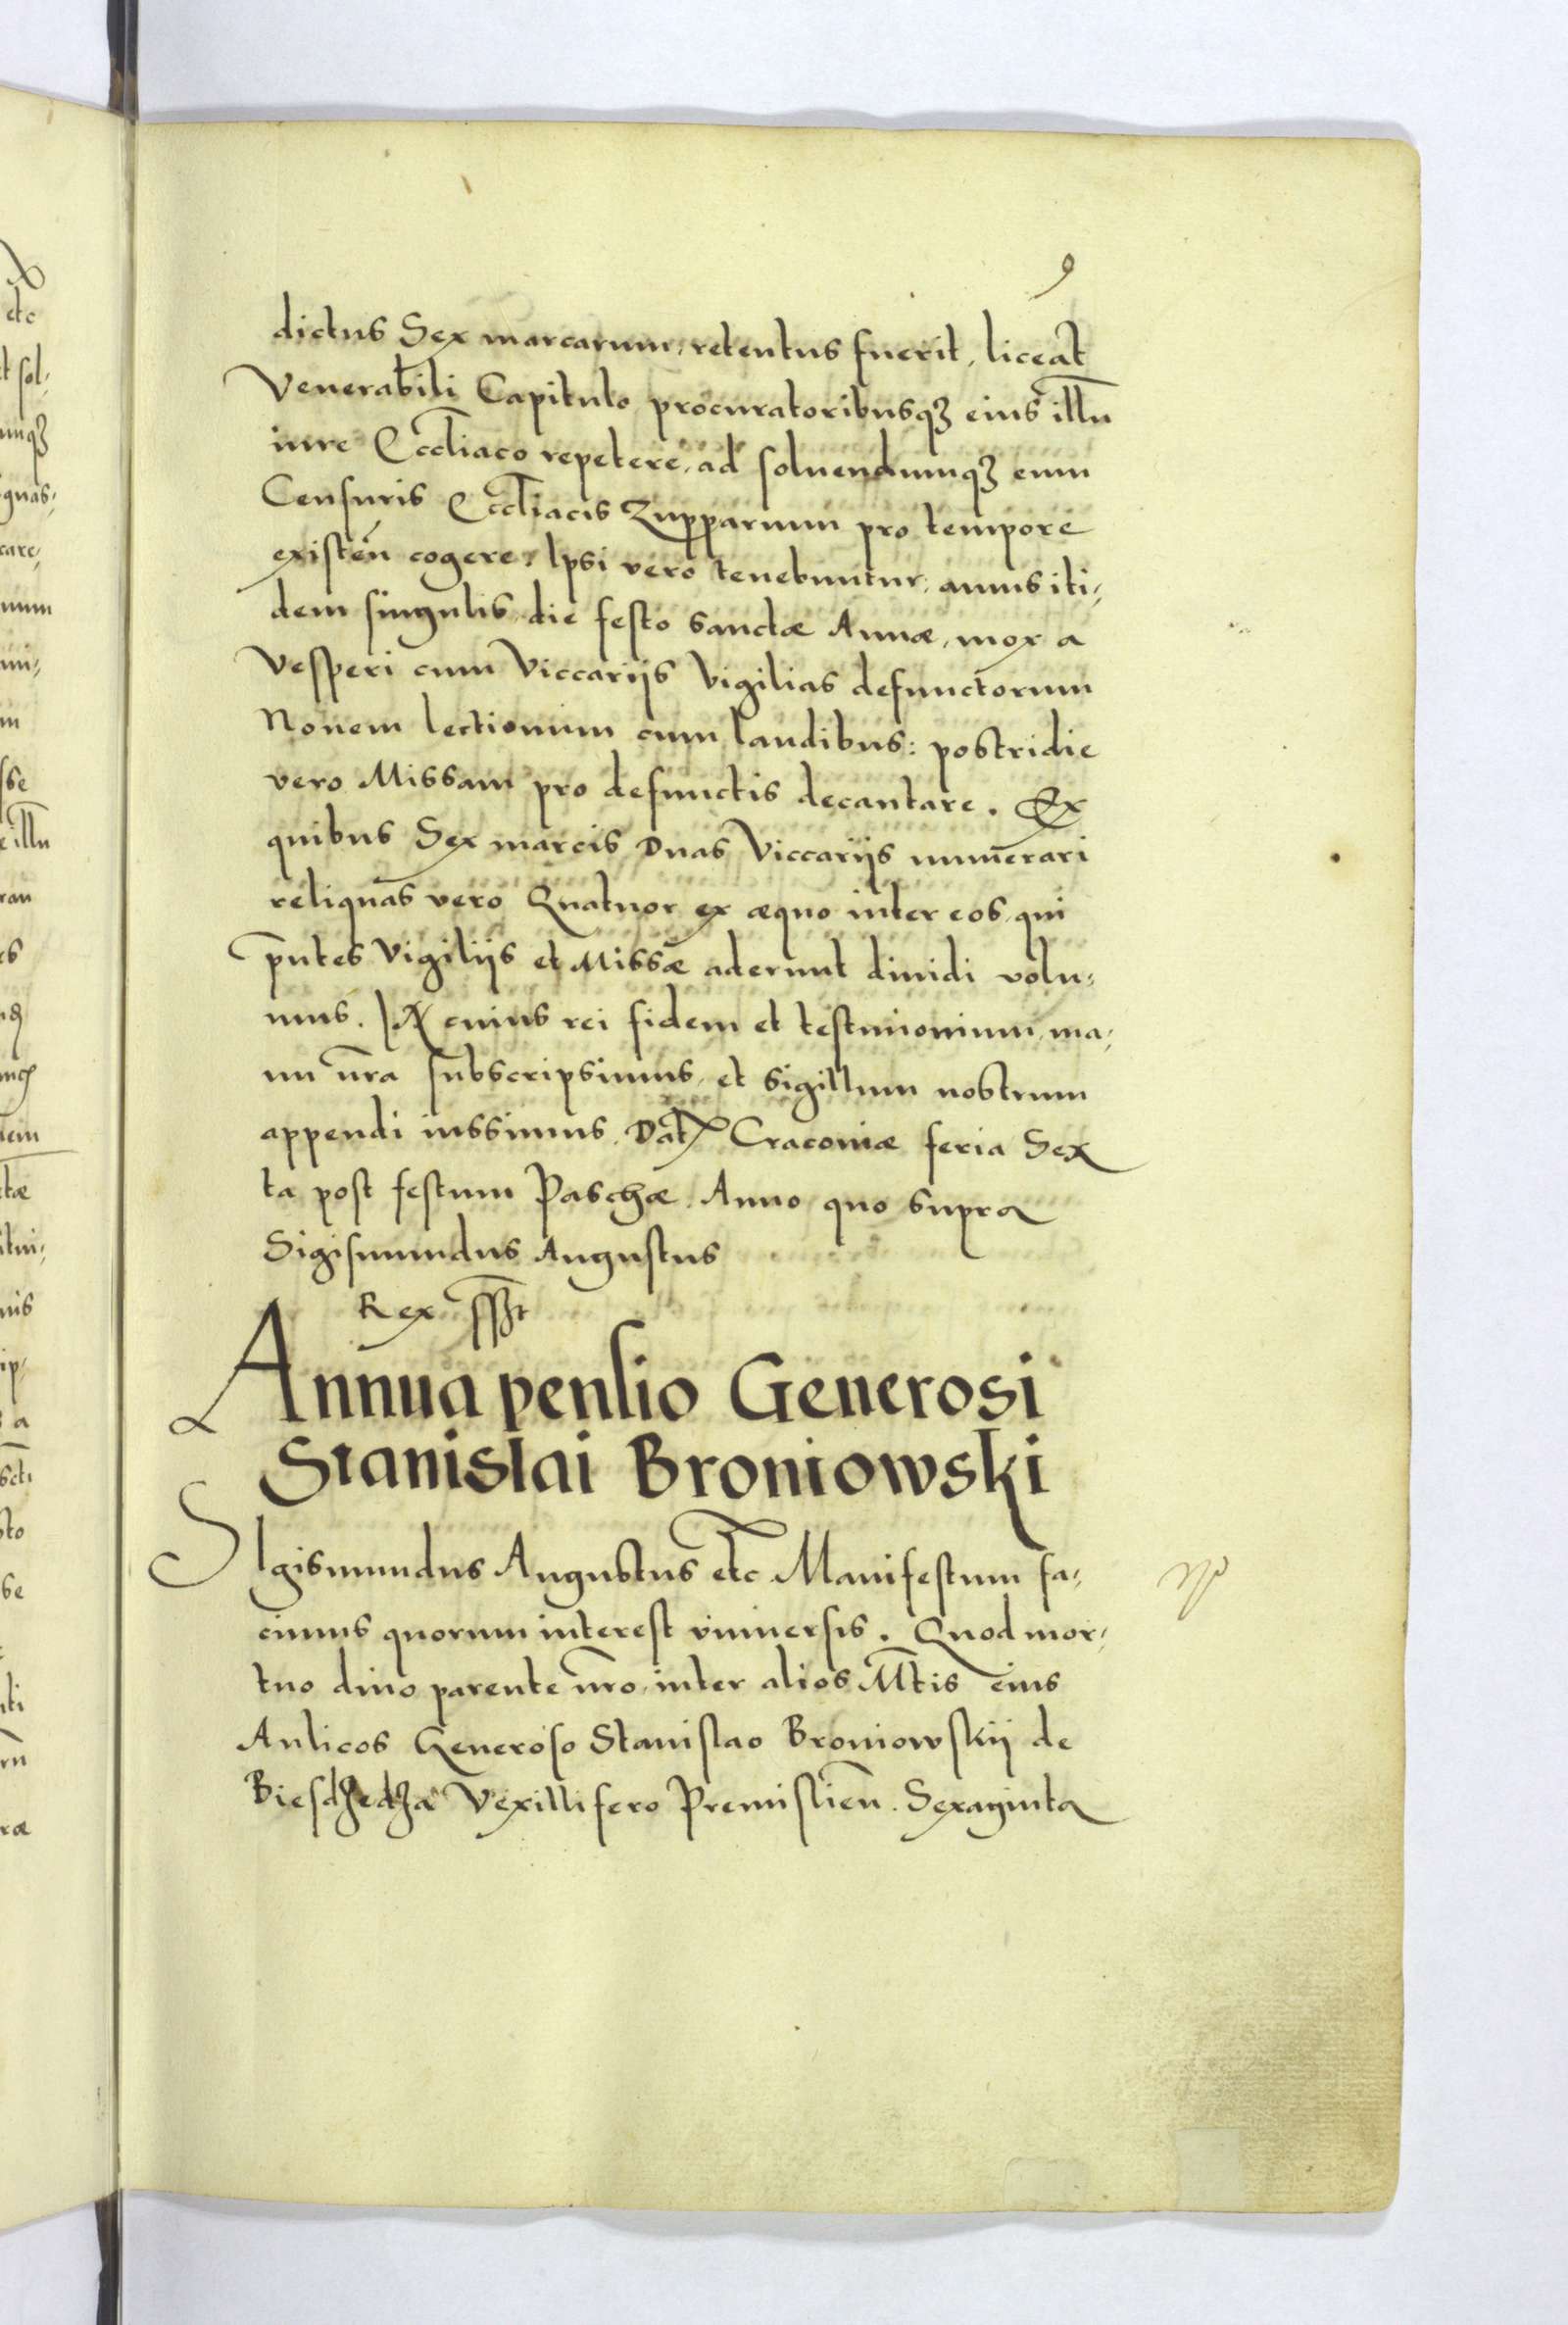 9
dictus Sex marcarum, retentus fuerit, liceat
Venerabili Capitulo procuratoribusqꝫ eius illu̅
iure Eccl̅iaco repetere, ad soluendumqꝫ eum
Censuris Eccl̅iacis Zupparum pro tempore
existen̅ cogere, Ipsi vero tenebuntur, annis iti-
dem singulis die festo sanctæ Annæ, mox a
Vesperi cum Viccarijs Vigilias defunctorum
Nouem lectionum cum laudibus: postridie
vero Missam pro defunctis decantare. Ex
quibus Sex marcis Duas Viccarijs numerari
reliquas vero Quatuor ex æquo inter eos, qui
pn̅tes Vigilijs et Missæ aderunt diuidi volu-
mus. IN cuius rei fidem et testimonium, ma-
nu nr̅a subscripsimus, et sigillum nostrum
appendi iussimus. Dat. Cracouiæ feria Sex
ta post festum Paschæ. Anno quo supra
Sigismundus Augustus
Rex sspt
Annua pensio Generosi
Stanislai Broniowski
SIgismundus Augustus etc Manifestum fa-
cimus quorum interest vniuersis. Quod mor-
tuo diuo parente nr̅o, inter alios Mt̅is eius
Aulicos Generoso Stanislao Broniowskij de
Biesdzedza Vexillifero Premislien̅. Sexaginta